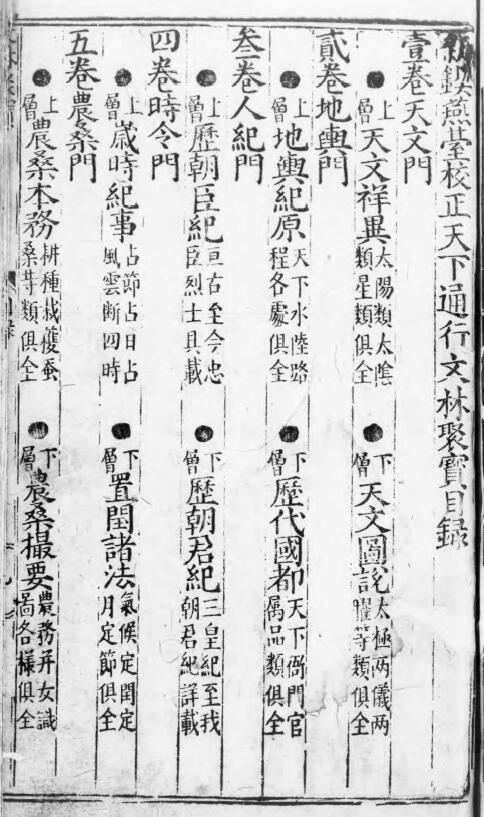 新鋟燕臺校正天下通行文林聚寶目錄
壹卷天文門
上層 天文祥異 太陽類太陰類星類俱全
下層 天文圖説 太極兩儀兩曜等類俱全
貳卷地輿門
上層 地輿紀原 天下水陸路程各處俱全
下層 歷代國都 天下衙門官属品類俱全
叁卷人紀門
上層 歷朝臣紀 亘古至今忠臣烈士具載
下層 歷朝君紀 三皇紀至我朝君紀詳載
四卷時令門
上層 嵗時紀事 占節占日占風雲斷四時
下層 置閏諸法 氣候定閏定月定節俱全
五卷農桑門
上層 農桑本務 耕種栽獲蚕桑等類俱全
下層 農桑撮要 農務并女識啚各様俱全